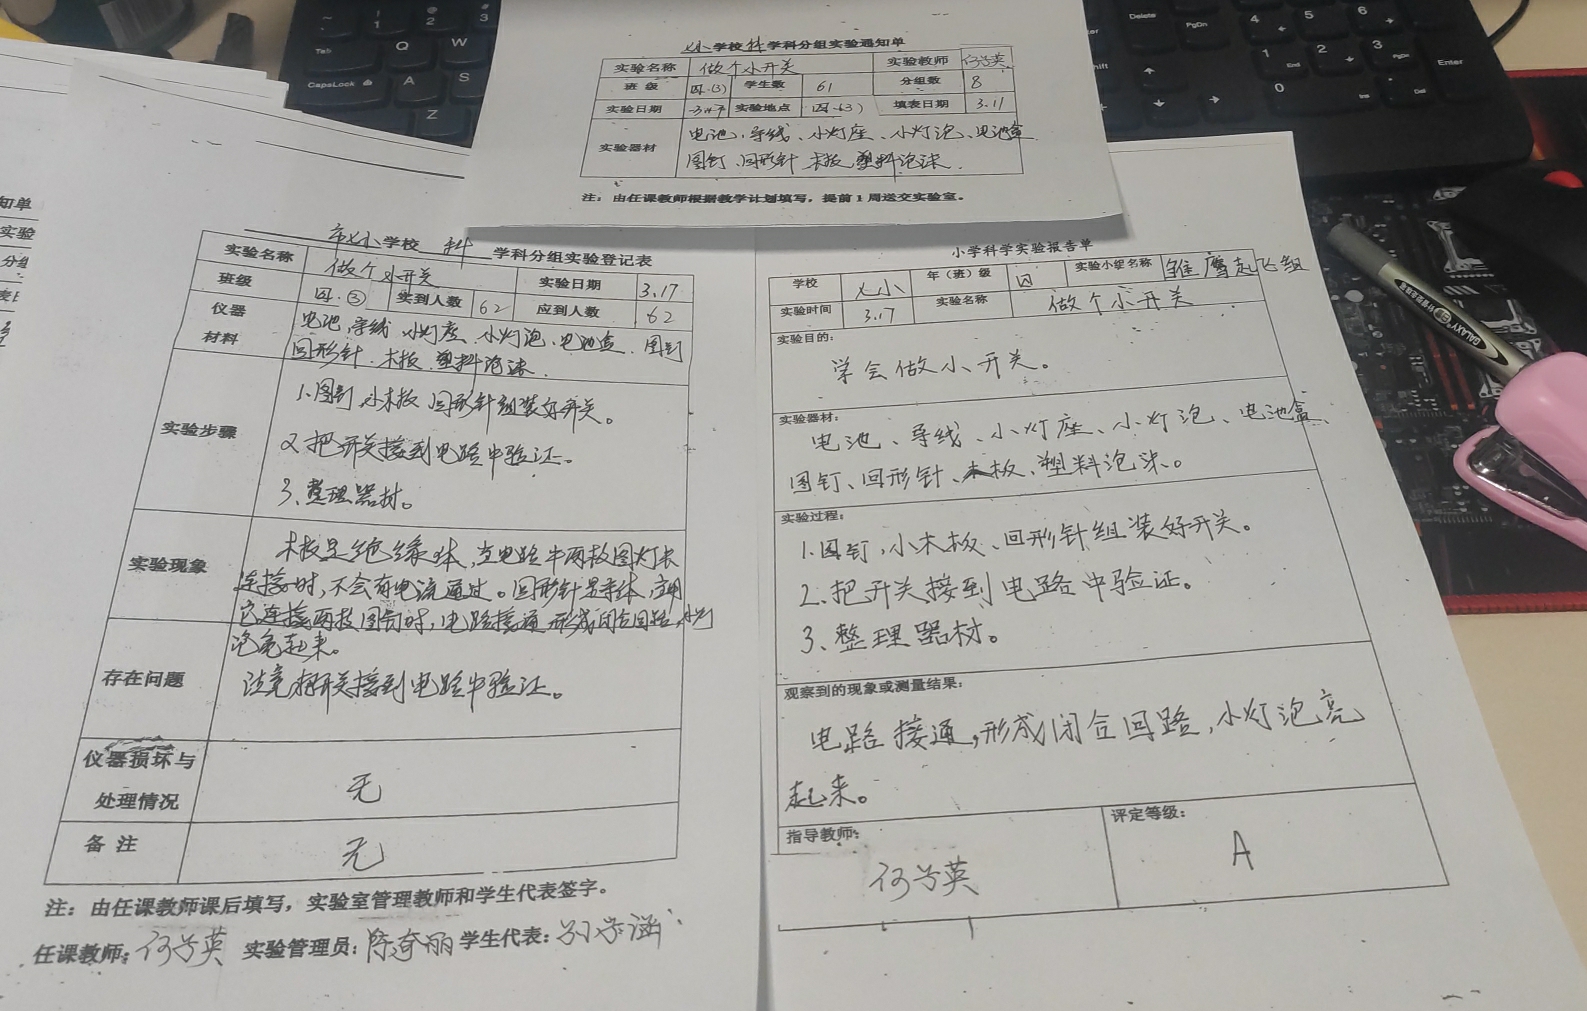 乂小学校科学科分组实验通知单
实验名称 做个小开关 实验教师
班级 四.(3) 学生数 61 分组数 8
实验日期 3.17 实验地点 四.(3) 填表日期 3.11
实验器材 电池、导线、小灯座、小灯泡、电池盒
图钉、回形针 木板 塑料泡沫.
注：由任课教师根据教学计划填写，提前1周送交实验室。
市乂小学校 科 学科分组实验登记表
实验名称 做个小开关 实验日期 3.17
班级 四.③ 实到人数 62 应到人数 62
仪器 电池,导线 小灯座 小灯泡、电池盒. 图钉
材料 回形针. 木板 塑料泡沫.
实验步骤 1.图钉,小木板 回形针组装好开关。
2.把开关接到电路中验证。
3、整理器材。
实验现象 木板是绝缘体,当电路中两枚图钉未
连接时,不会有电流通过。回形针是导体,
它连接两枚图钉时,电路接通 形成闭合回路,小灯
泡亮起来。
存在问题 注意把开关接到电路中验证。
仪器损坏与
处理情况 无
备注 无
注：由任课教师课后填写，实验室管理教师和学生代表签字。
任课教师: 实验管理员: 学生代表:
小学科学实验报告单
学校 乂小 年（班）级 四 实验小组名称 雏鹰起飞组
实验时间 3.17 实验名称 做个小开关
实验目的:
学会做小开关。
实验器材:
电池、导线、小灯座、小灯泡、电池盒、
图钉、回形针、木板、塑料泡沫。
实验过程:
1.图钉,小木板、回形针组装好开关。
2.把开关接到电路中验证。
3、整理器材。
观察到的现象或测量结果:
电路接通,形成闭合回路,小灯泡亮
起来。
指导教师: 评定等级:
A
知单
实验
分组
CapsLock
Tab
Q
W
A
S
Z
Delete
PgDn
Enter